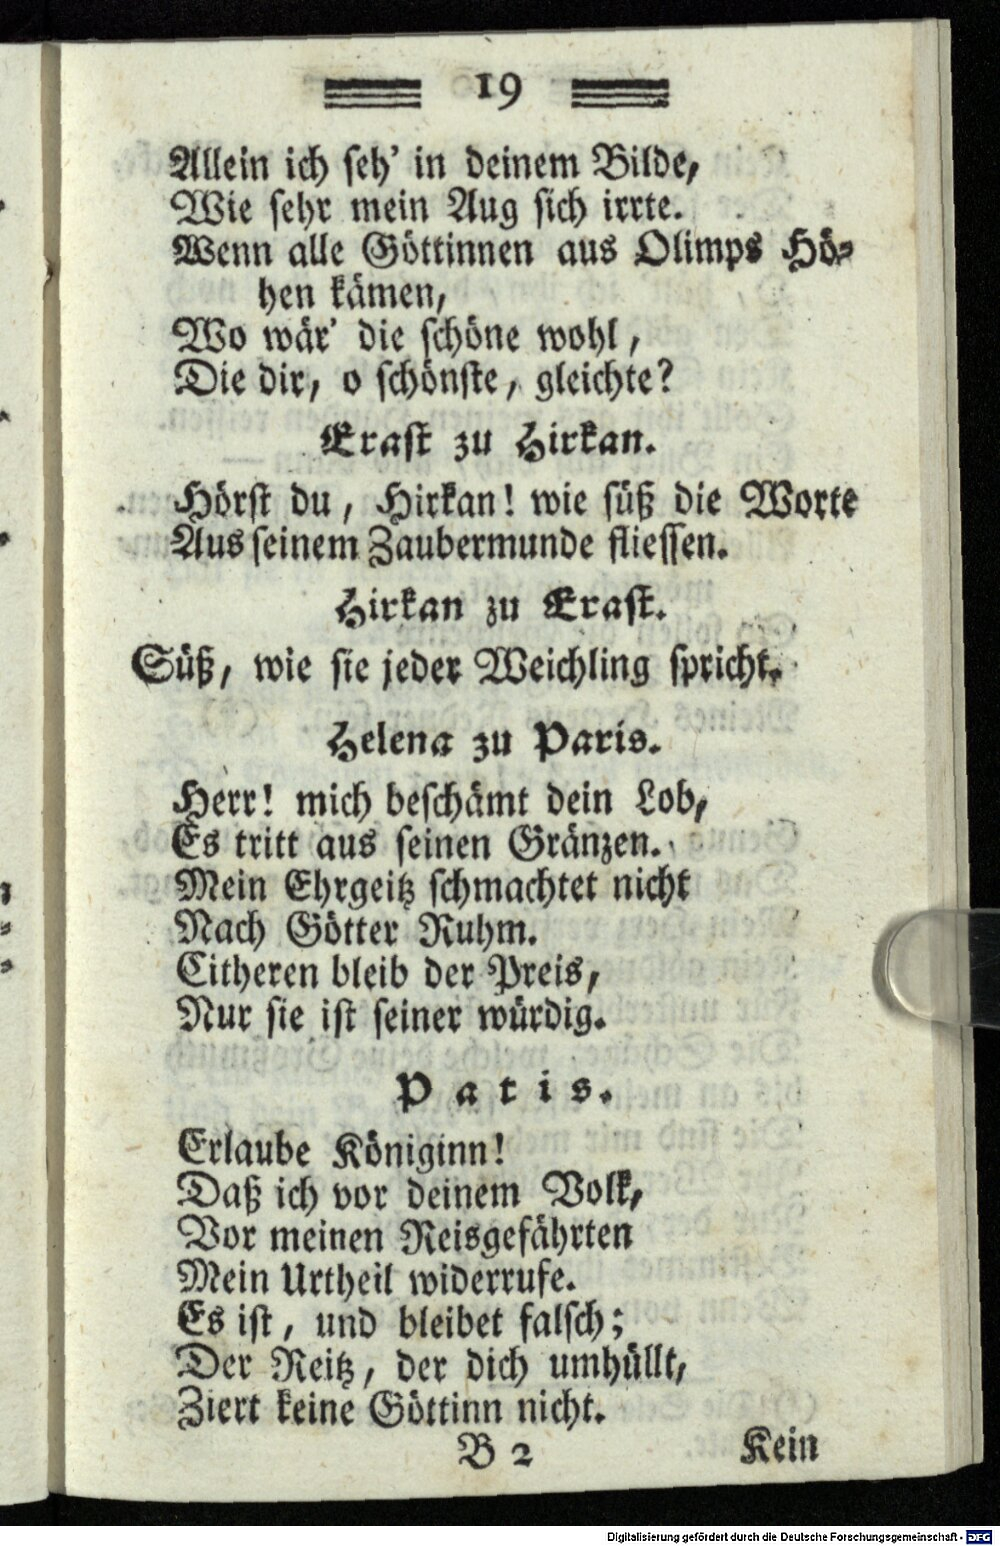 19
Allein ich seh' in deinem Bilde,
Wie sehr mein Aug sich irrte.
Wenn alle Göttinnen aus Olimps Hö-
hen kämen,
Wo wär' die schöne wohl,
Die dir, o schönste, gleichte?
Erast zu Hirkan.
Hörst du, Hirkan! wie süß die Worte
Aus seinem Zaubermunde fliessen.
Hirkan zu Erast.
Süß, wie sie jeder Weichling spricht.
Helena zu Paris.
Herr! mich beschämt dein Lob,
Es tritt aus seinen Gränzen.
Mein Ehrgeitz schmachtet nicht
Nach Götter Ruhm.
Citheren bleib der Preis,
Nur sie ist seiner würdig.
Paris.
Erlaube Königinn!
Daß ich vor deinem Volk,
Vor meinen Reisgefährten
Mein Urtheil widerrufe.
Es ist, und bleibet falsch;
Der Reitz, der dich umhüllt,
Ziert keine Göttinn nicht.
B 2 Kein
Digitalisierung gefördert durch die Deutsche Forschungsgemeinschaft - DFG